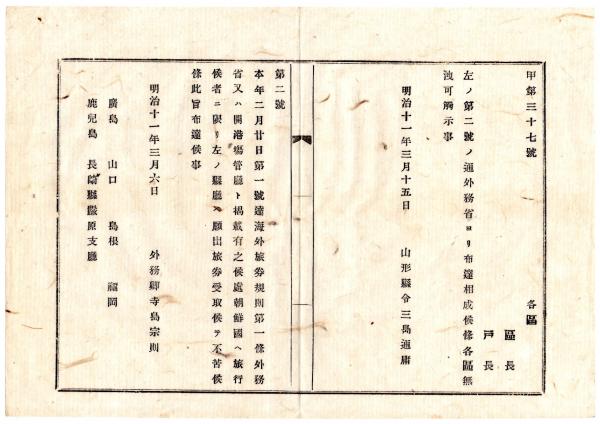 甲第三十七號
各區
區長
戸長
左ノ第二號ノ通外務省ヨリ布達相成候條各區無
洩可觸示事
明治十一年三月十五日
山形縣令三島通庸
第二號
本年二月廿日第一號達海外旅券規則第一條外務
省又ハ開港場管廳ト揭載有之候處朝鮮國ヘ旅行
候者ニ限リ左ノ縣廳ヘ願出旅券受取候テ不苦候
條此旨布達候事
明治十一年三月六日
外務卿寺島宗則
廣島 山口 島根 福岡
鹿兒島 長崎縣嚴原支廳